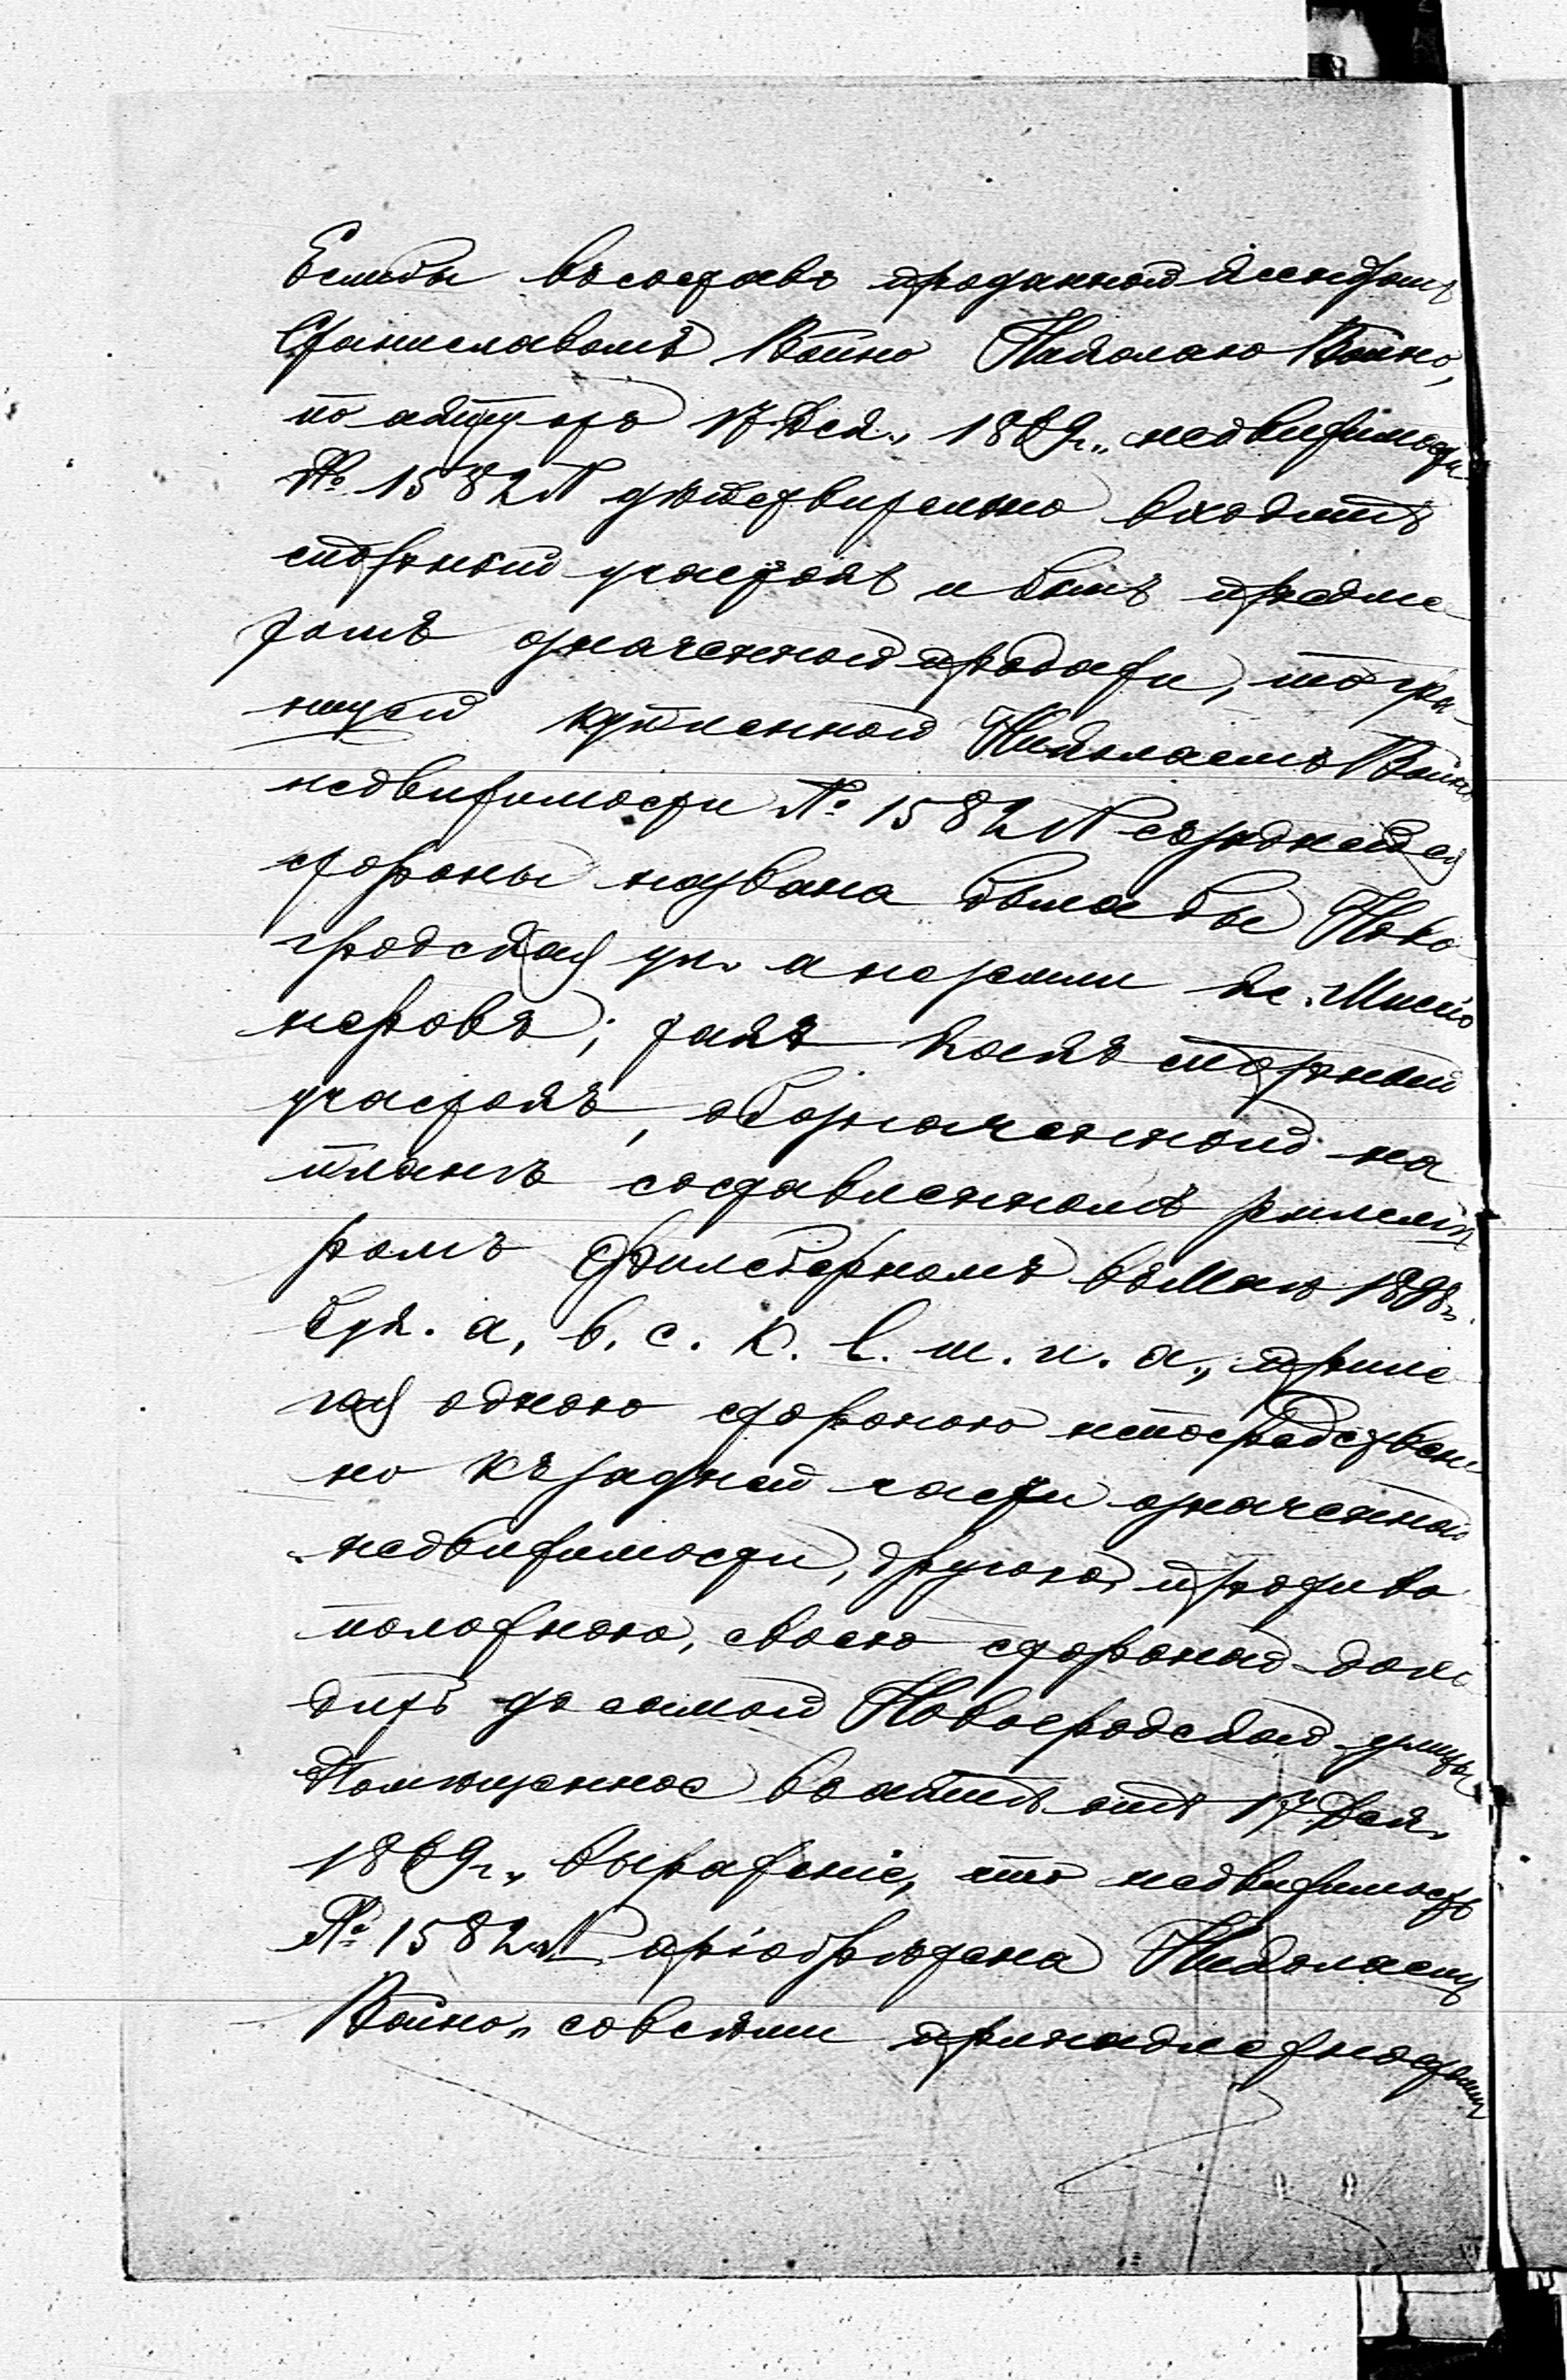 Еслибы въ составъ проданной Ксендзомъ
Станиславомъ Войно Николаю Войно,
по акту отъ 17 Дек. 1869 г., недвижимости
№ 1582 Л дѣйствительно входилъ
спорный участокъ и былъ предме
томъ означенной продажи, то гра-
ницей купленной Николаемъ Войно
недвижимости № 1582 Л съ задней
стороны названа была бы Ново
гродская ул. а не земли
такъ какъ спорный
участокъ, обозначенный на
планѣ составленномъ
ромъ въ Маѣ 1898 г.
бук. a, b. c. k. l. m. n. a., приле
гая одною стороною непосредствен
но къ задней части означенной
недвижимости, другою, противо
положною, своею стороной дохо
дитъ до самой Новогродской улицы
Помѣщенное въ актѣ отъ 17 Дек.
1869 г., выраженіе, что недвижимость
№ 1582 Л пріобрѣтена Николаемъ
Войно „со всѣми принадлежностями